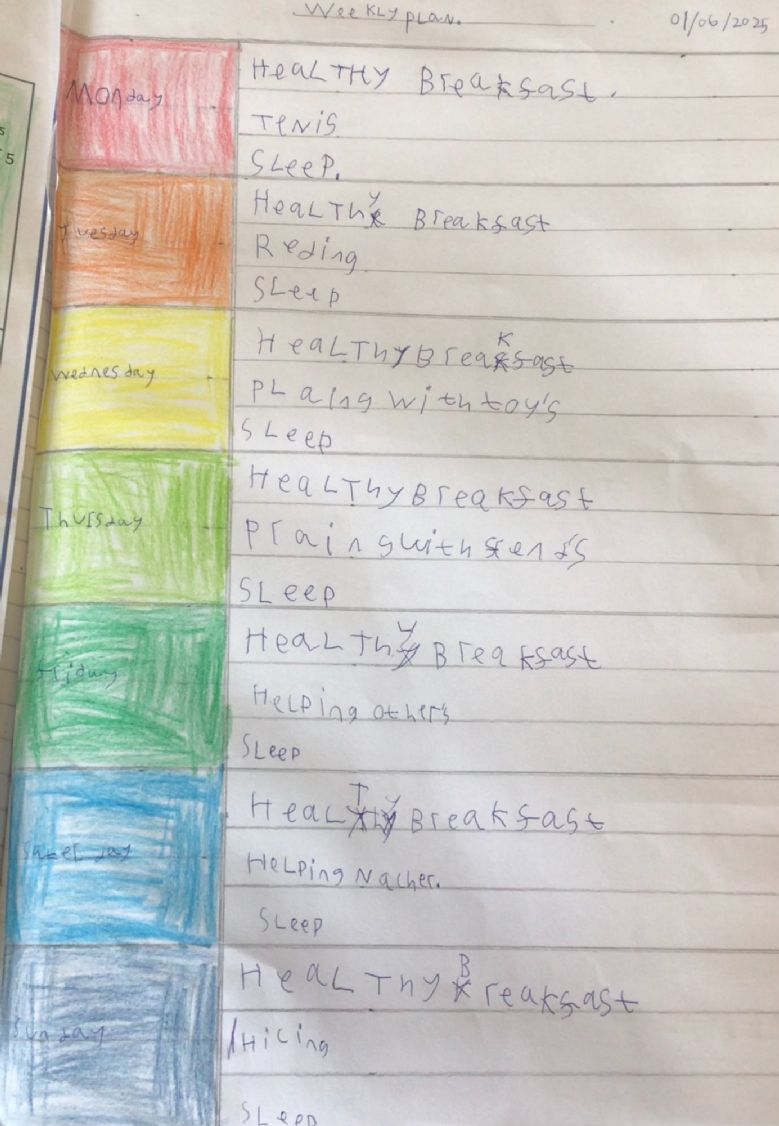 Weekly plan.
01/06/2025
s
5
Monday
Healthy Breakfast.
Tenis
Sleep.
Tuesday
Healthy Breakfast
Reding
Sleep
Wednesday
Healthy Breakfast
Plaing with toy's
Sleep
Thursday
Healthy Breakfast
Plaing with frend's
Sleep
Friday
Healthy Breakfast
Helping other's
Sleep
Saterday
Healthy Breakfast
Helping Nacher.
Sleep
Sunday
Healthy Breakfast
Hicing
Sleep